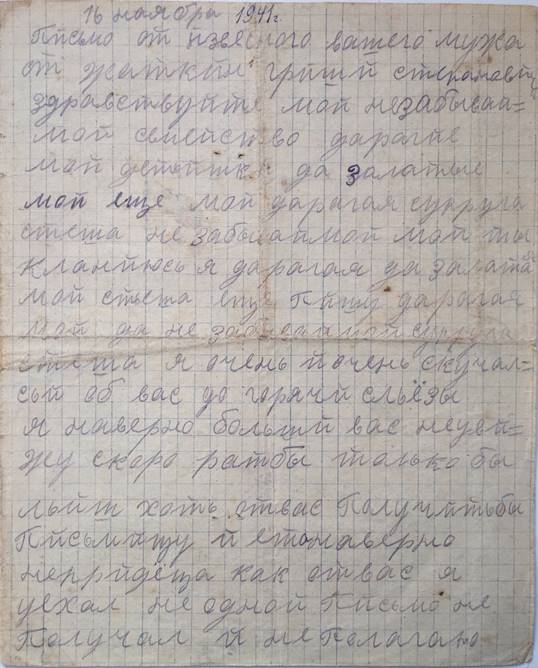 16 ноября 1941г.
Письмо от извесного вашего мужа
от Жаткин Гриши степановича
здравствуйте мои незабываи=
мои семейство дарагие
мои детытки да залатые
мои еще моя дарагая супруга
стеша не забываимои мои ты
Кланиюсь я дарагая да залатая
мои стеша еще Пишу дарагая
мои да не забываимои супруга
стеша я очень и очень скучал=
сы об вас до горячи сльёзы
я наверно больши вас неуви=
жу скоро ратбы только бы
льиш хоть отвас Получитьбы
Письмишу и етонаверно
непридёца как отвас я
уехал не одной Письмо не
Получал и неполагаю